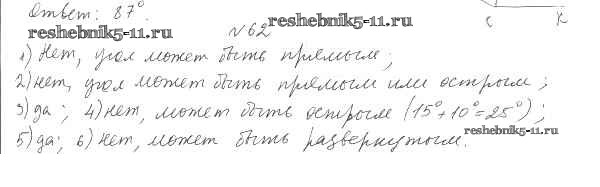 Ответ: 87°.
reshebnik5-11.ru
reshebnik5-11.ru
С К
№62
1) Нет, угол может быть прямым;
2) нет, угол может быть прямым или острым;
3) да; 4) нет, может быть острым (15°+10°=25°);
5) да; 6) нет, может быть развернутым.
reshebnik5-11.ru